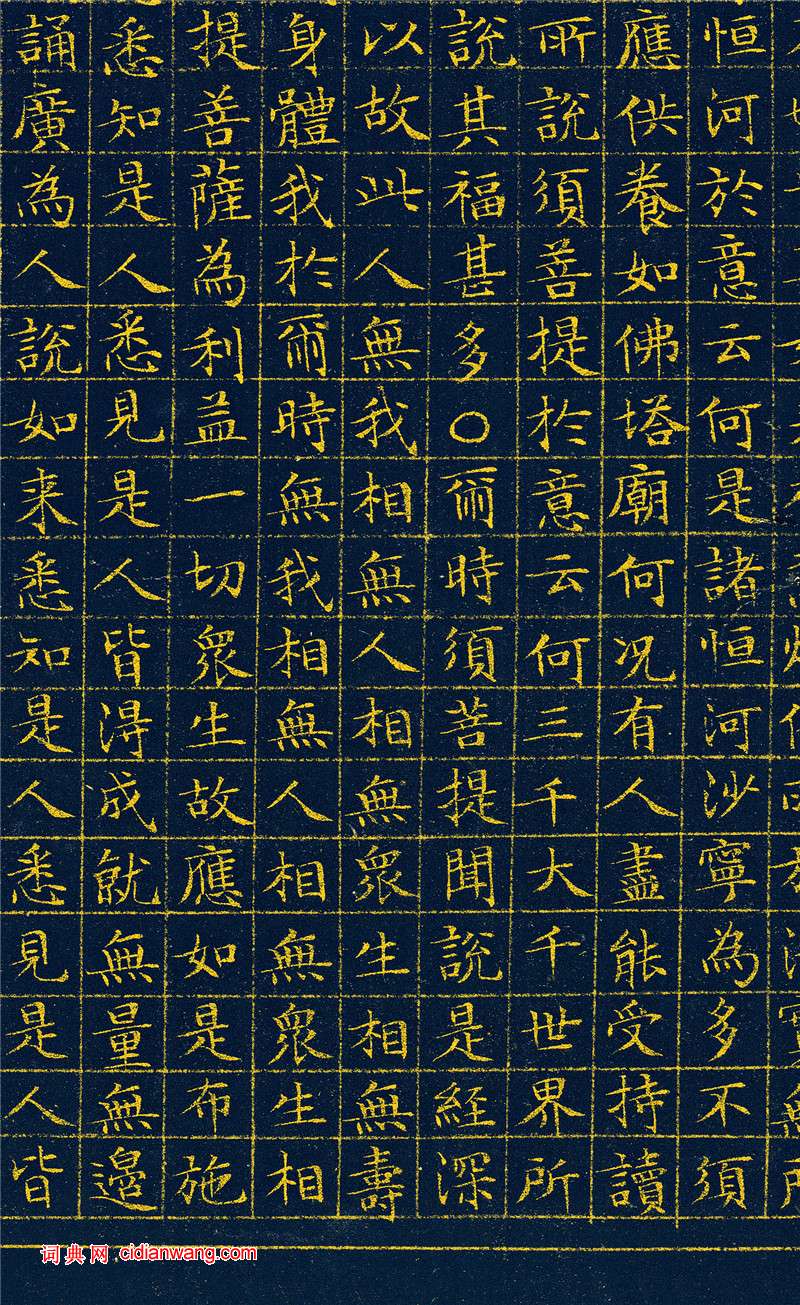 恒河於意云何是諸恒河沙寧為多不須
應供養如佛塔廟何况有人盡能受持讀
所說須菩提於意云何三千大千世界所
說其福甚多○爾時須菩提聞說是經深
以故此人無我相無人相無眾生相無壽
身體我於爾時無我相無人相無眾生相
提菩薩為利益一切眾生故應如是布施
悉知是人悉見是人皆得成就無量無邊
誦廣為人說如来悉知是人悉見是人皆
词典网 cidianwang.com